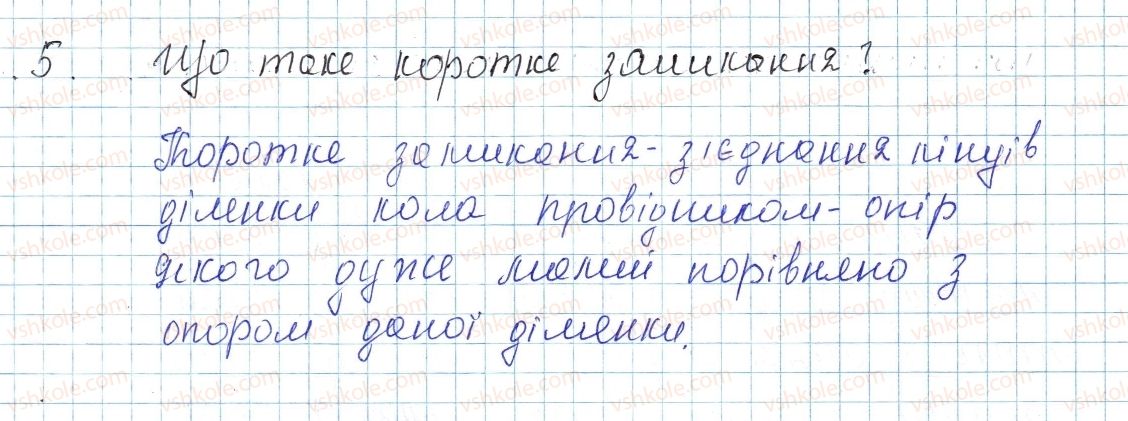 5. Що таке коротке замикання?
Коротке замикання - з'єднання кінців
ділянки кола провідником - опір
якого дуже малий порівняно з
опором даної ділянки.